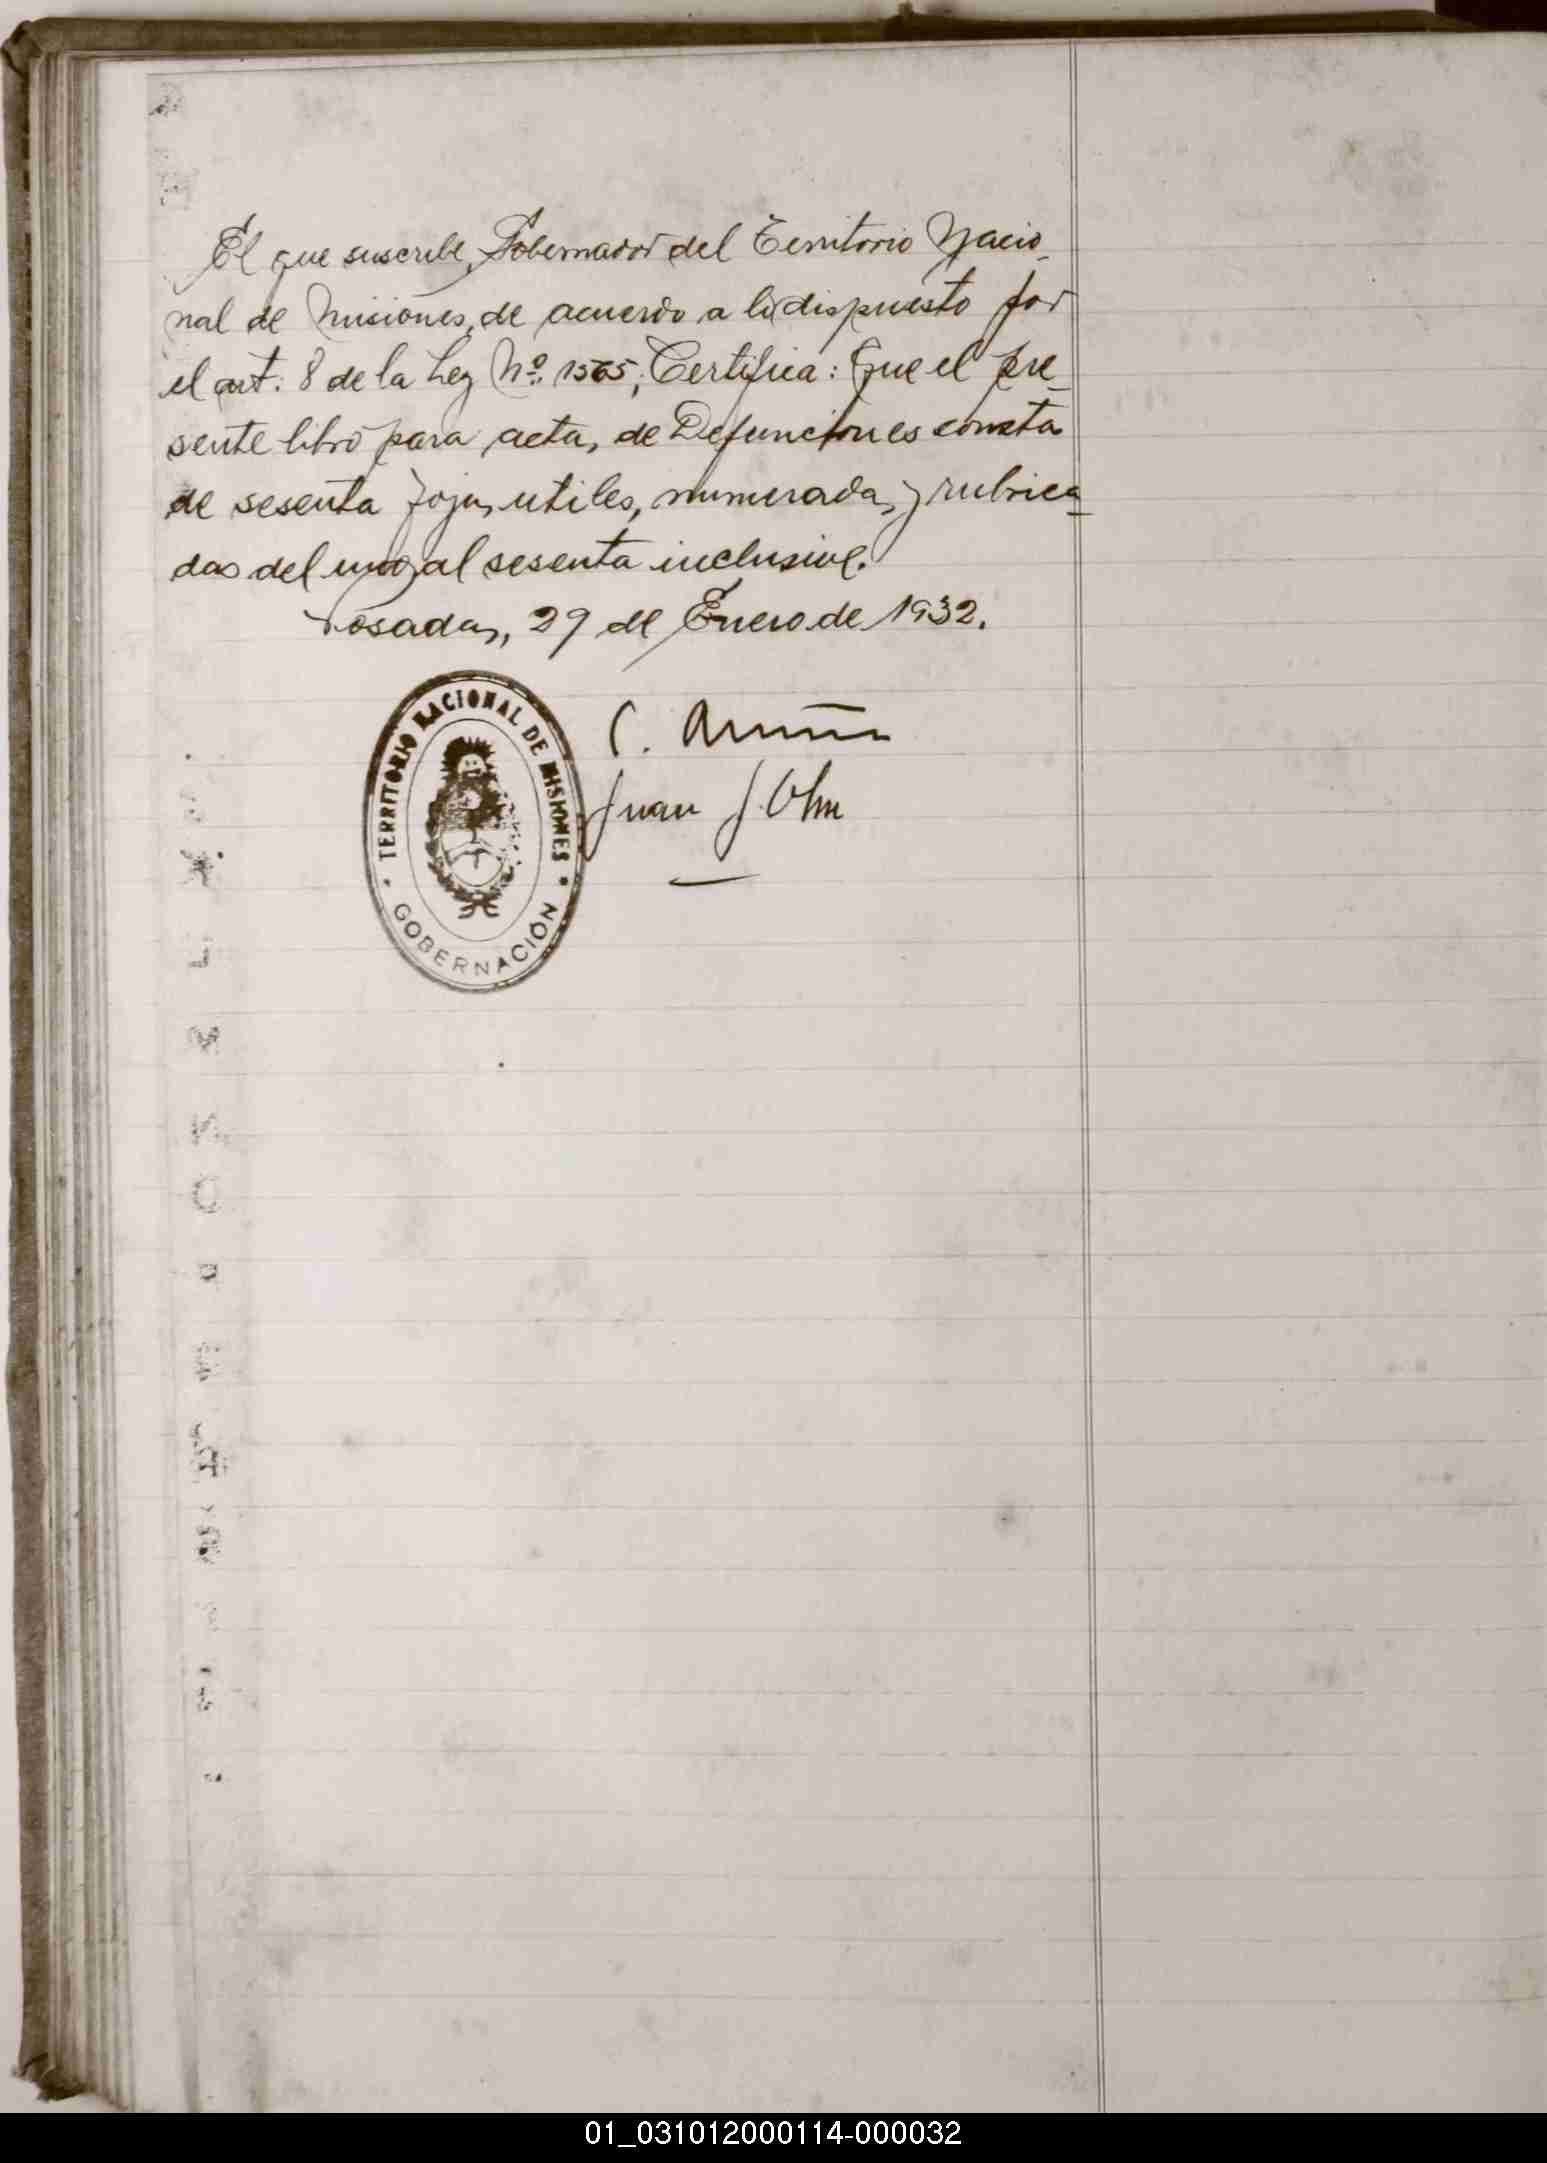 El que suscribe, Gobernador del Territorio Nacio-
nal de Misiones, de acuerdo a lo dispuesto por
el art. 8 de la Ley Nº 1565, Certifica: Que el pre-
sente libro para actas de Defunciones consta
de sesenta fojas utiles, numeradas y rubrica-
das del uno al sesenta inclusive.
Posadas, 29 de Enero de 1932.
TERRITORIO NACIONAL DE MISIONES
GOBERNACIÓN
C. 
Juan J.
01_031012000114-000032